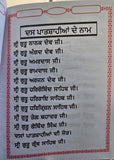 ਦਸ ਪਾਤਸ਼ਾਹੀਆਂ ਦੇ ਨਾਮ
ਸ੍ਰੀ ਗੁਰੂ ਨਾਨਕ ਦੇਵ ਜੀ।
ਸ੍ਰੀ ਗੁਰੂ ਅੰਗਦ ਦੇਵ ਜੀ।
ਸ੍ਰੀ ਗੁਰੂ ਅਮਰਦਾਸ ਜੀ।
ਸ੍ਰੀ ਗੁਰੂ ਰਾਮਦਾਸ ਜੀ।
ਸ੍ਰੀ ਗੁਰੂ ਅਰਜਨ ਦੇਵ ਜੀ।
ਸ੍ਰੀ ਗੁਰੂ ਹਰਿਗੋਬਿੰਦ ਸਾਹਿਬ ਜੀ।
ਸ੍ਰੀ ਗੁਰੂ ਹਰਿਰਾਇ ਸਾਹਿਬ ਜੀ।
ਸ੍ਰੀ ਗੁਰੂ ਹਰਿਕ੍ਰਿਸ਼ਨ ਸਾਹਿਬ ਜੀ।
ਸ੍ਰੀ ਗੁਰੂ ਤੇਗ ਬਹਾਦਰ ਜੀ।
ਸ੍ਰੀ ਗੁਰੂ ਗੋਬਿੰਦ ਸਿੰਘ ਜੀ।
ਦਸਾਂ ਪਾਤਸ਼ਾਹੀਆਂ ਦੀ ਜੋਤ
ਸ੍ਰੀ ਗੁਰੂ ਗ੍ਰੰਥ ਸਾਹਿਬ ਜੀ।